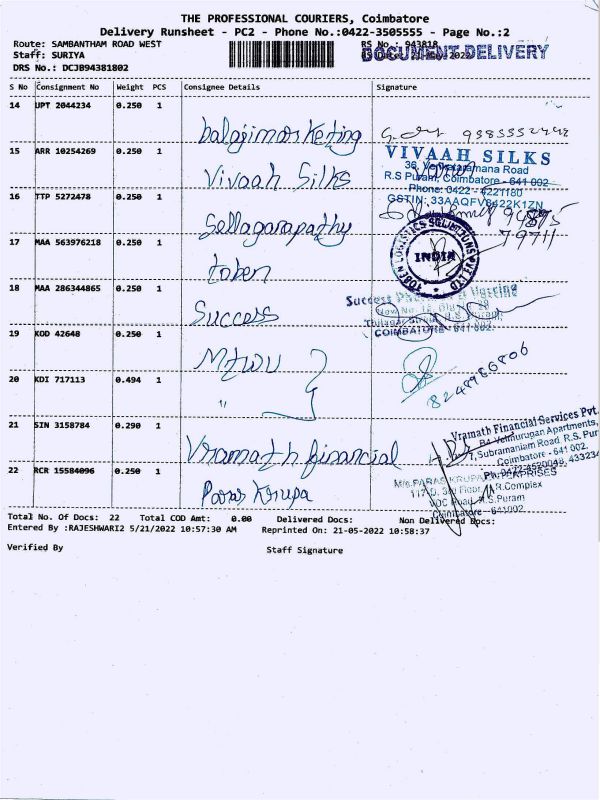 THE PROFESSIONAL COURIERS, Coimbatore
Delivery Runsheet - PC2 - Phone No.:0422-3505555 - Page No.:2
Route: SAMBANTHAM ROAD WEST
RS No.: 943818
Staff: SURIYA
DOCUMENT DELIVERY
DRS No.: DCJB94381802
S No Consignment No Weight PCS Consignee Details Signature
14 UPT 2044234 0.250 1 balajimarketing
15 ARR 10254269 0.250 1 Vivaah Silks
VIVAAH SILKS
36, Venkataramana Road
R.S Puram, Coimbatore - 641 002
Phone: 0422 - 4221180
GSTIN: 33AAQFV8422K1ZN
16 TTP 5272478 0.250 1 Sellaganapathy
17 MAA 563976218 0.250 1 toben
TOBEN LOGISTICS SOLUTIONS PVT LTD
INDIA
18 MAA 286344865 0.250 1 Success
Success
COIMBATORE - 641 002.
19 KOD 42648 0.250 1
20 KDI 717113 0.494 1 "
8248986806
21 SIN 3158784 0.290 1 Vramath financial
Vramath Financial Services Pvt.
Velmurugan Apartments,
Subramaniam Road, R.S. Pur
Coimbatore - 641 002.
22 RCR 15584096 0.250 1 Paras Krupa
M/s.PARAS KRUPA ENTERPRISES
117-D, 3rd Floor, R.Complex
VOC Road, R.S.Puram
Coimbatore - 641002
Total No. Of Docs: 22 Total COD Amt: 0.00 Delivered Docs: Non Delivered Docs:
Entered By :RAJESHWARI2 5/21/2022 10:57:30 AM Reprinted On: 21-05-2022 10:58:37
Verified By Staff Signature